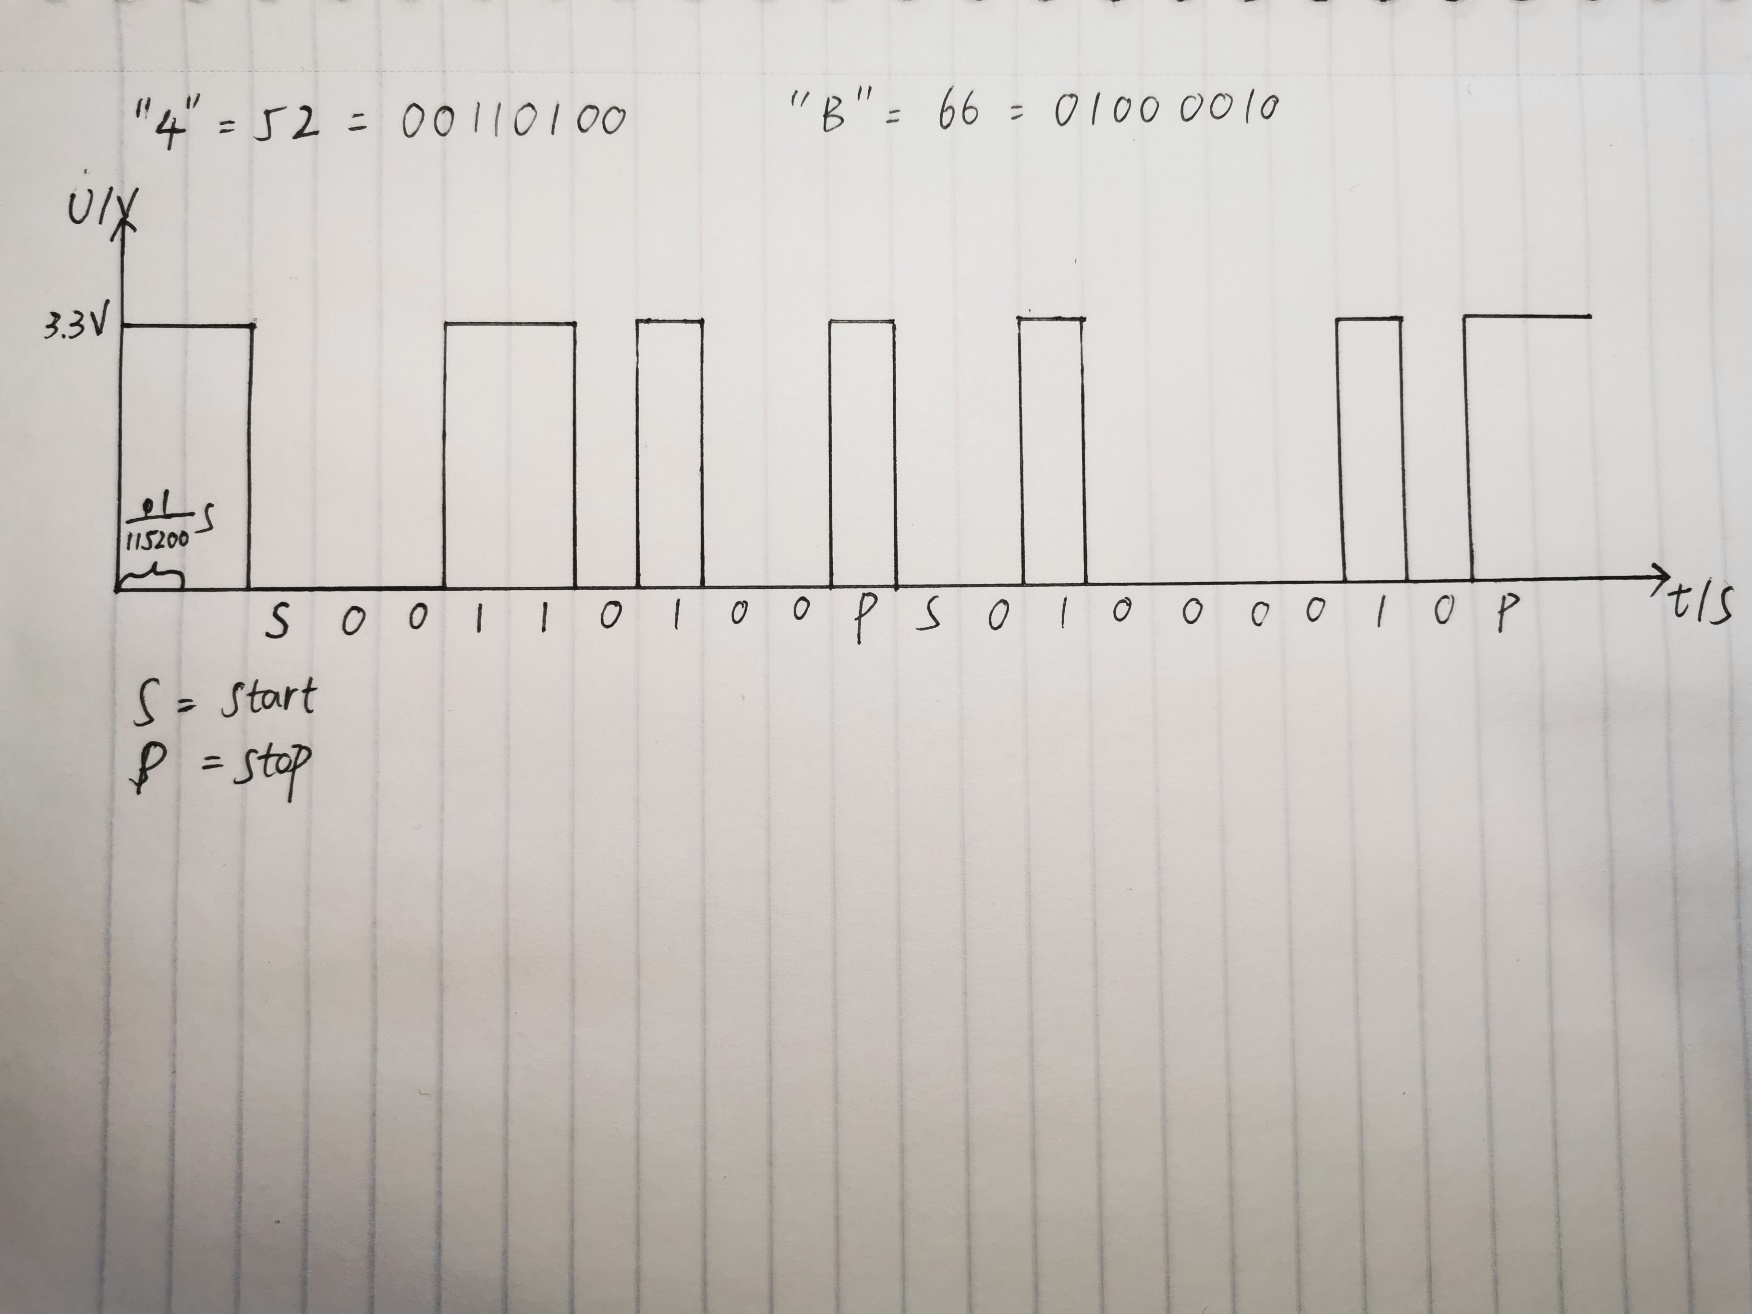 "4" = 52 = 00110100 "B" = 66 = 01000010
U/V
3.3V
1
115200 S
S 0 0 1 1 0 1 0 0 P S 0 1 0 0 0 0 1 0 P
t/s
S = start
P = stop